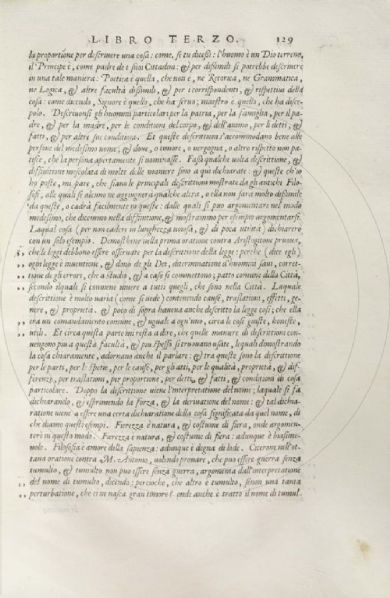 LIBRO TERZO. 129
la proportione per descriuere una cosa: come, se tu dicessi: l'huomo è un Dio terreno,
il Principe è, come padre de i suoi Cittadini: & per dissimili si potrebbe descriuere
in una tale maniera: Poetica è quella, che non è, ne Retorica, ne Grammatica,
ne Logica, & altre facultà dissimili, & per i correspondenti, & rispettiui della
cosa: come dicendo, Signore è quello, che ha seruo; maestro è quello, che ha disce-
polo. Descriuonsi gli huomini particolari per la patria, per la famiglia, per il pa-
dre, & per la madre, per le conditioni del corpo, & dell'animo, per li detti, &
fatti, & per altre sue conditioni. Et queste descrittioni s'accommodano bene alle
persone del medesimo nome; & doue, o timore, o uergogna, o altro rispetto non pa-
tisce, che la persona apertamente si nominasse. Fassi qualche uolta descrittione, &
diffinitione mescolata di molte delle maniere sino a qui dichiarate: & queste ch'io
ho poste, mi pare, che siano le principali descrittioni mostrate da gli antichi Filoso-
fi, alle quali se alcuno ne aggiungerà qualche altra, o ella non sarà molto dissimile
da queste, o caderà facilmente in queste: dalle quali si può argomentare nel modo
medesimo, che dicemmo nella diffinitione, & mostrammo per esempio argomentarsi.
Laqual cosa (per non cadere in lunghezza noiosa, & di poca utilità) dichiarerò
con un solo esempio. Demosthene nella prima oratione contra Aristogitone proua,
che le leggi debbono essere osseruate per la descrittione della legge: perche (dice egli)
ogni legge è inuentione, & dono de gli Dei, determinatione d'huomini saui, corret-
tione de gli errori, che a studio, & a caso si commettono; patto commune della Città,
secondo il quale si conuiene uiuere a tutti quegli, che sono nella Città. Laquale
descrittione è molto uaria (come si uede) contenendo cause, traslationi, effetti, ge-
nere, & proprietà. & poco di sopra haueua anche descritto la legge così; che ella
era un comandamento comune, & uguale a ogn'uno, circa le cose giuste, honeste,
utili. Et circa questa parte mi resta a dire, che quelle maniere di descrittioni con-
uengono più a questa facultà, & più spesso si truouano usate, le quali dimostrando
la cosa chiaramente, adornano anche il parlare: & tra queste sono la descrittione
per le parti, per le spetie, per le cause, per gli atti, per le qualità, proprietà, & dif-
ferenze, per traslationi, per proportione, per detti, & fatti, & conditioni di cose
particolari. Doppo la descrittione uiene l'interpretatione del nome; laquale si fa
dichiarando, & esprimendo la forza, & la deriuatione del nome: & tal dichia-
ratione uiene a essere una certa dichiaratione della cosa significata da quel nome, di
che diamo questi esempi. Fierezza è natura, & costume di fiera, onde argomen-
terei in questo modo: Fierezza è natura, & costume di fiera: adunque è biasime-
uole. Filosofia è amore della sapienza: adunque è degna di lode. Cicerone nell'ot-
taua oratione contra M. Antonio, uolendo prouare, che può essere guerra senza
tumulto, & tumulto non può essere senza guerra, argomenta dall'interpretatione
del nome di tumulto, dicendo; percioche, che altro è tumulto, senon una tanta
perturbatione, che ne nasca gran timore? onde anche è tratto il nome di tumul.